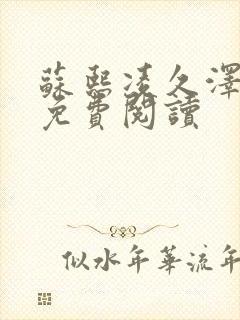 蘇熙凌久澤
免費閱讀
似水年華流年